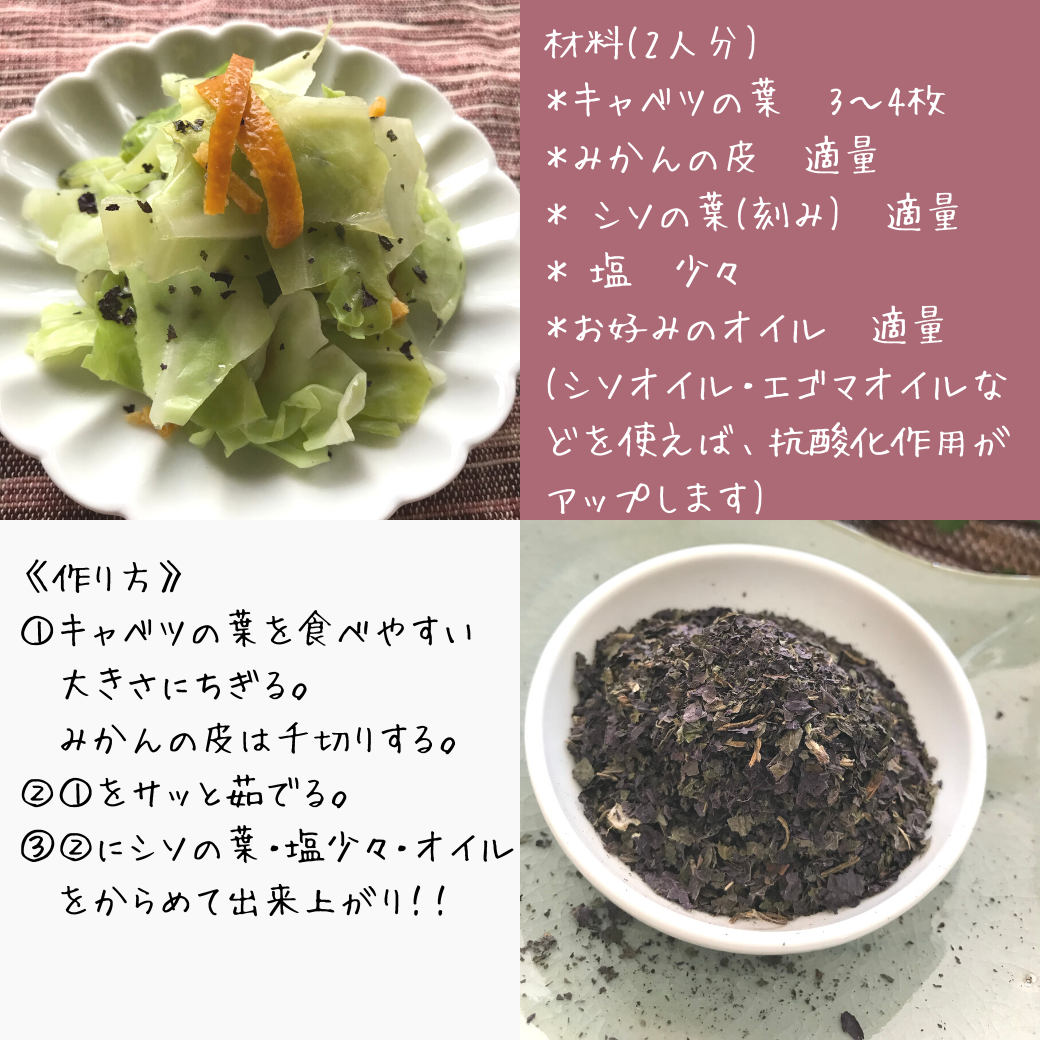 材料(2人分)
*キャベツの葉　3〜4枚
*みかんの皮　適量
* シソの葉(刻み)　適量
* 塩　少々
*お好みのオイル　適量
(シソオイル・エゴマオイルな
どを使えば、抗酸化作用が
アップします)
《作り方》
①キャベツの葉を食べやすい
大きさにちぎる。
みかんの皮は千切りする。
②①をサッと茹でる。
③②にシソの葉・塩少々・オイル
をからめて出来上がり!!